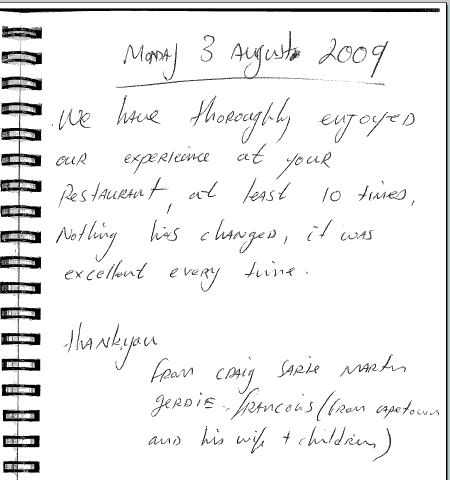 Monday 3 August 2009
We have thoroughly enjoyed
our experience at your
Restaurant, at least 10 times,
Nothing has changed, it was
excellent every time.
Thankyou
From CRAIG SARIE MARTIN
GERDIE. FRANCOIS (from capetown
and his wife + children)